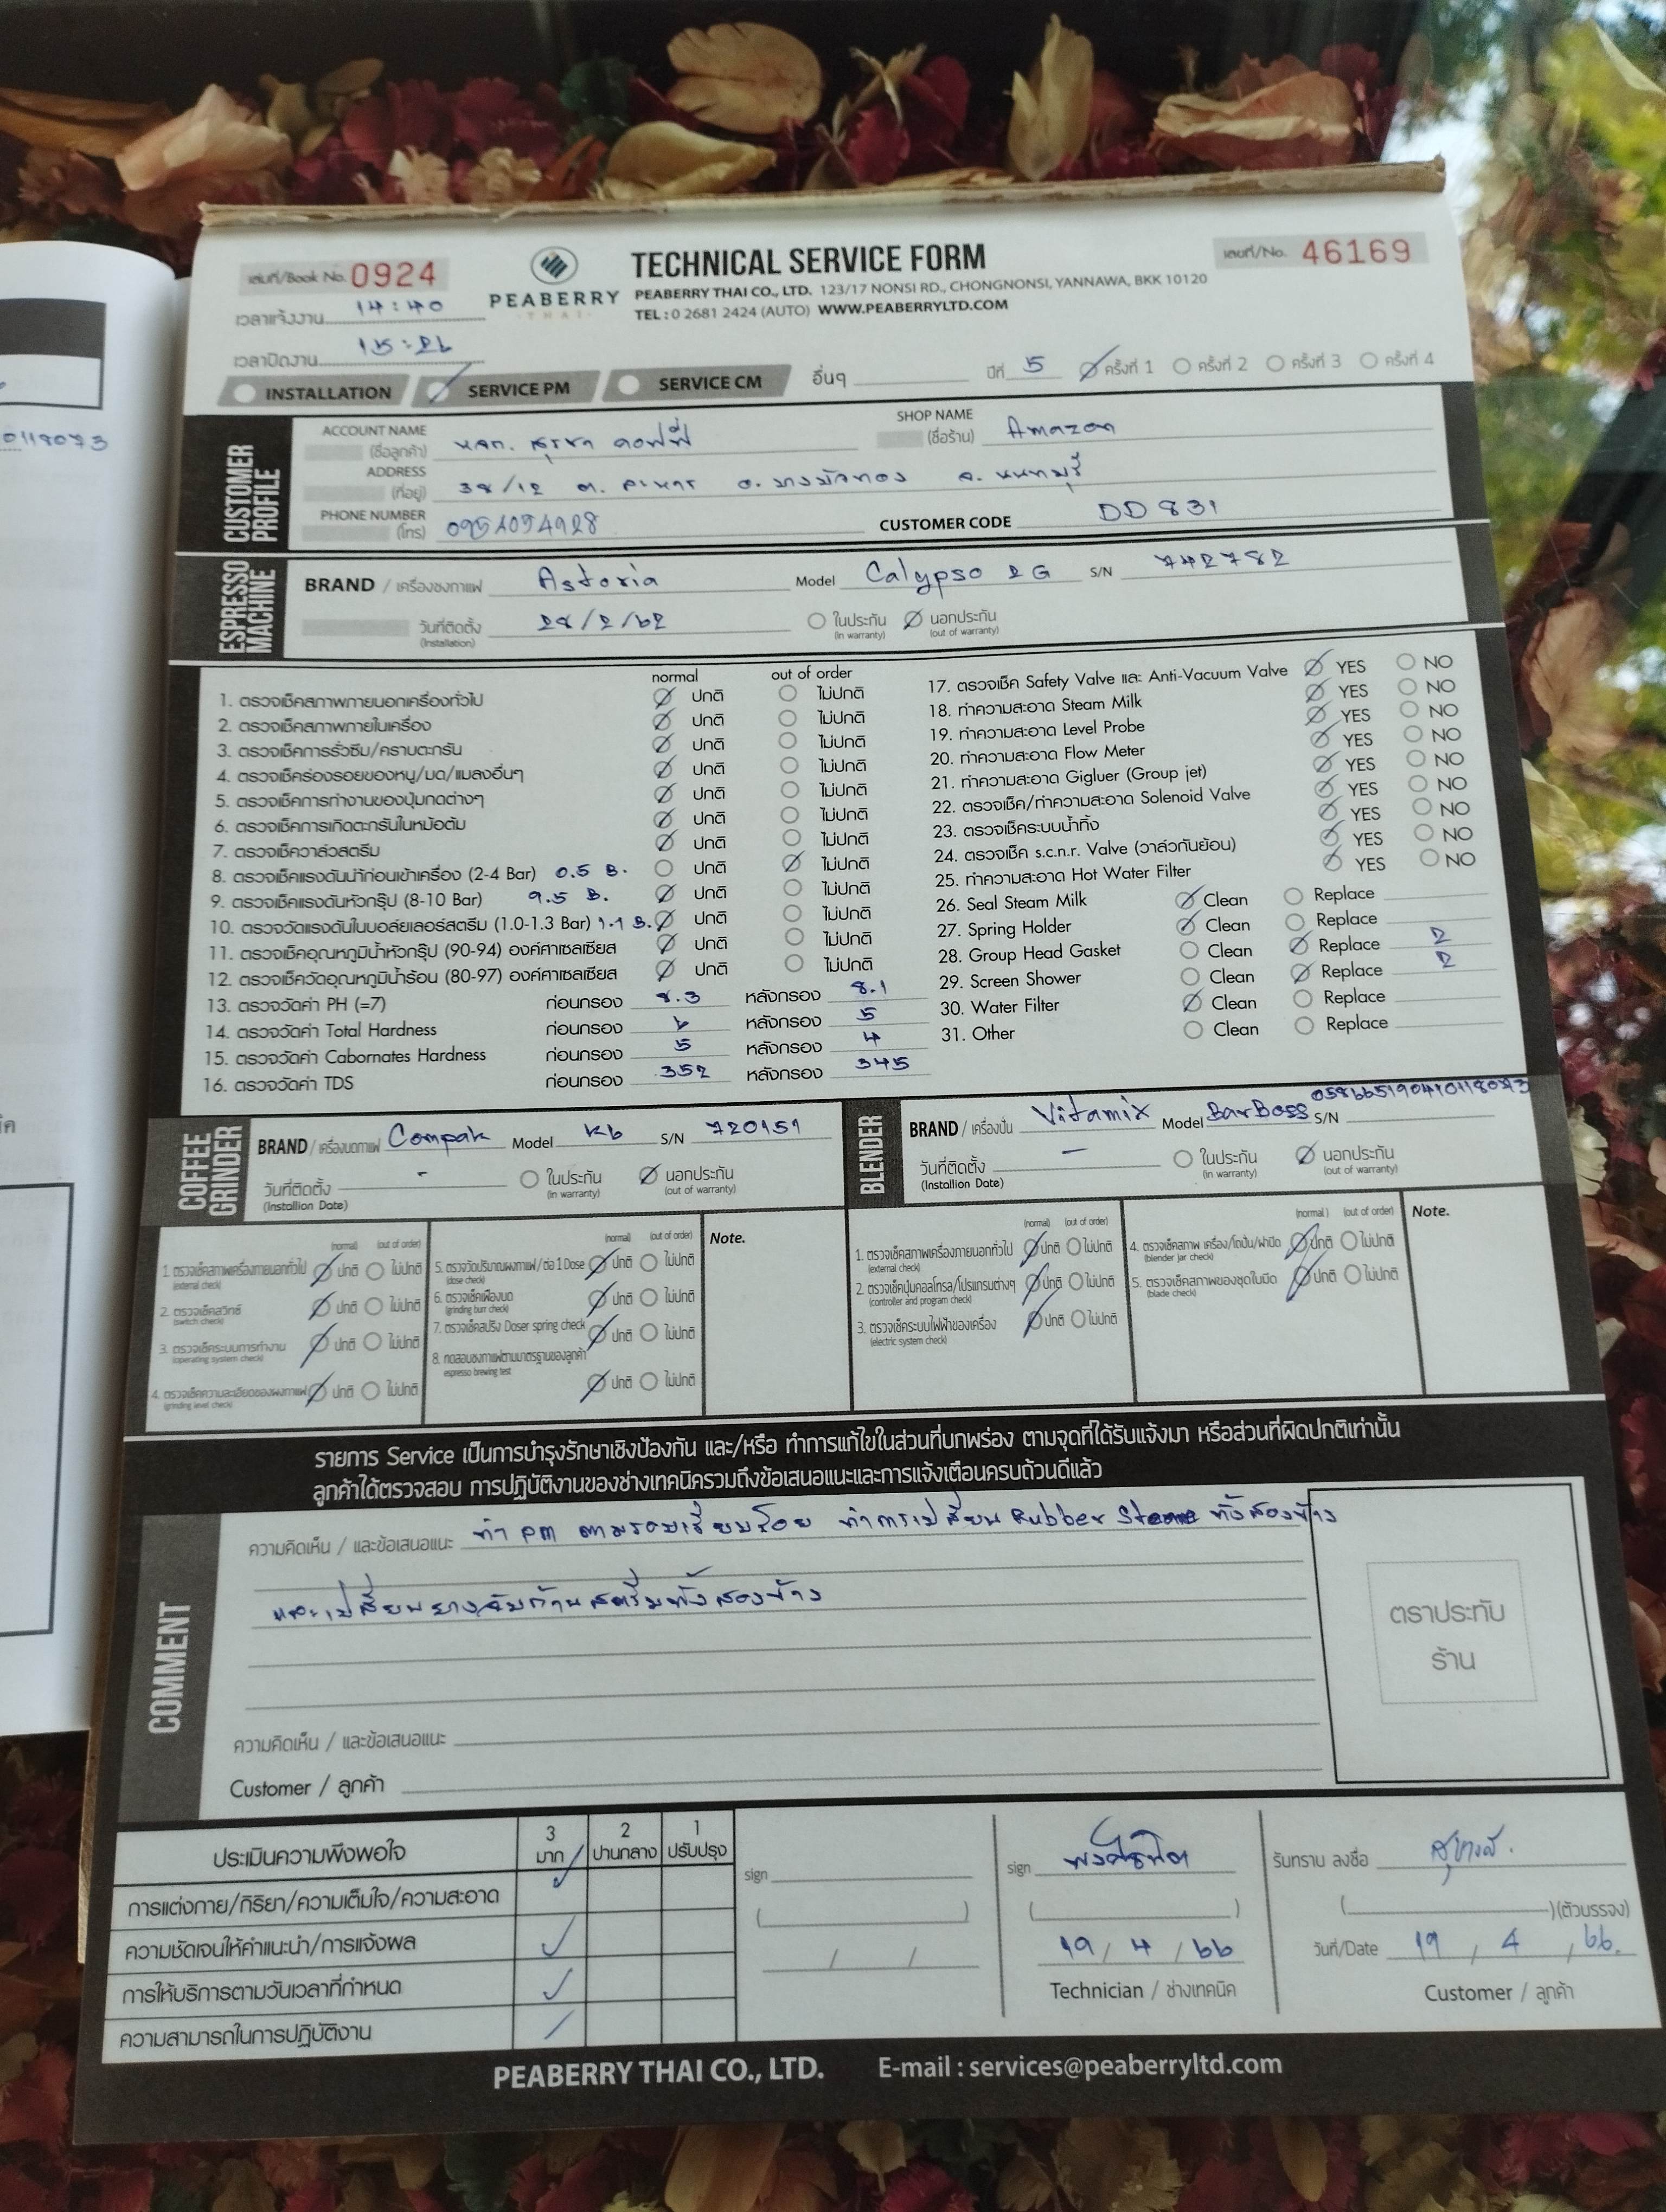 เล่มที่/Book No. 0924
PEABERRY
THAI
TECHNICAL SERVICE FORM
PEABERRY THAI CO., LTD. 123/17 NONSI RD., CHONGNONSI, YANNAWA, BKK 10120
TEL : 0 2681 2424 (AUTO) WWW.PEABERRYLTD.COM
เลขที่/No. 46169
เวลาแจ้งงาน 14:40
เวลาปิดงาน 15:26
INSTALLATION SERVICE PM SERVICE CM อื่นๆ ปีที่ 5 ครั้งที่ 1 ครั้งที่ 2 ครั้งที่ 3 ครั้งที่ 4
CUSTOMER PROFILE
ACCOUNT NAME (ชื่อลูกค้า) หจก. สุรชา คอฟฟี่ SHOP NAME (ชื่อร้าน) Amazon
ADDRESS (ที่อยู่) 38/12 ต. ละหาร อ. บางบัวทอง จ. นนทบุรี
PHONE NUMBER (โทร) 0954094928 CUSTOMER CODE DD831
ESPRESSO MACHINE
BRAND / เครื่องชงกาแฟ Astoria Model Calypso 2G S/N 742782
วันที่ติดตั้ง (Installation) 28/2/62 ในประกัน (in warranty) นอกประกัน (out of warranty)
normal out of order
1. ตรวจเช็คสภาพภายนอกเครื่องทั่วไป ปกติ ไม่ปกติ
2. ตรวจเช็คสภาพภายในเครื่อง ปกติ ไม่ปกติ
3. ตรวจเช็คการรั่วซึม/คราบตะกรัน ปกติ ไม่ปกติ
4. ตรวจเช็คร่องรอยของหนู/มด/แมลงอื่นๆ ปกติ ไม่ปกติ
5. ตรวจเช็คการทำงานของปุ่มกดต่างๆ ปกติ ไม่ปกติ
6. ตรวจเช็คการเกิดตะกรันในหม้อต้ม ปกติ ไม่ปกติ
7. ตรวจเช็ควาล์วสตรีม ปกติ ไม่ปกติ
8. ตรวจเช็คแรงดันน้ำก่อนเข้าเครื่อง (2-4 Bar) 0.5 B. ปกติ ไม่ปกติ
9. ตรวจเช็คแรงดันหัวกรุ๊ป (8-10 Bar) 9.5 B. ปกติ ไม่ปกติ
10. ตรวจวัดแรงดันในบอล์ยเลอร์สตรีม (1.0-1.3 Bar) 1.1 B. ปกติ ไม่ปกติ
11. ตรวจเช็คอุณหภูมิน้ำหัวกรุ๊ป (90-94) องค์ศาเซลเซียส ปกติ ไม่ปกติ
12. ตรวจเช็ควัดอุณหภูมิน้ำร้อน (80-97) องค์ศาเซลเซียส ปกติ ไม่ปกติ
13. ตรวจวัดค่า PH (=7) ก่อนกรอง 8.3 หลังกรอง 8.1
14. ตรวจวัดค่า Total Hardness ก่อนกรอง 6 หลังกรอง 5
15. ตรวจวัดค่า Cabornates Hardness ก่อนกรอง 5 หลังกรอง 4
16. ตรวจวัดค่า TDS ก่อนกรอง 352 หลังกรอง 345
17. ตรวจเช็ค Safety Valve และ Anti-Vacuum Valve YES NO
18. ทำความสะอาด Steam Milk YES NO
19. ทำความสะอาด Level Probe YES NO
20. ทำความสะอาด Flow Meter YES NO
21. ทำความสะอาด Gigluer (Group jet) YES NO
22. ตรวจเช็ค/ทำความสะอาด Solenoid Valve YES NO
23. ตรวจเช็คระบบน้ำทิ้ง YES NO
24. ตรวจเช็ค s.c.n.r. Valve (วาล์วกันย้อน) YES NO
25. ทำความสะอาด Hot Water Filter YES NO
26. Seal Steam Milk Clean Replace
27. Spring Holder Clean Replace
28. Group Head Gasket Clean Replace 2
29. Screen Shower Clean Replace 2
30. Water Filter Clean Replace
31. Other Clean Replace
COFFEE GRINDER
BRAND / เครื่องบดกาแฟ Compak Model K6 S/N 720151
วันที่ติดตั้ง (Installion Date) - ในประกัน (in warranty) นอกประกัน (out of warranty)
BLENDER
BRAND / เครื่องปั่น Vitamix Model BarBoss S/N 058665190410118073
วันที่ติดตั้ง (Installion Date) - ในประกัน (in warranty) นอกประกัน (out of warranty)
(normal) (out of order)
1. ตรวจเช็คสภาพเครื่องภายนอกทั่วไป (external check) ปกติ ไม่ปกติ
2. ตรวจเช็คสวิทซ์ (switch check) ปกติ ไม่ปกติ
3. ตรวจเช็คระบบการทำงาน (operating system check) ปกติ ไม่ปกติ
4. ตรวจเช็คความละเอียดของผงกาแฟ (grinding level check) ปกติ ไม่ปกติ
(normal) (out of order)
5. ตรวจวัดปริมาณผงกาแฟ/ต่อ 1 Dose (dose check) ปกติ ไม่ปกติ
6. ตรวจเช็คเฟืองบด (grinding burr check) ปกติ ไม่ปกติ
7. ตรวจเช็คสปริง Doser spring check ปกติ ไม่ปกติ
8. ทดสอบชงกาแฟตามมาตรฐานของลูกค้า espresso brewing test ปกติ ไม่ปกติ
Note.
(normal) (out of order)
1. ตรวจเช็คสภาพเครื่องภายนอกทั่วไป (external check) ปกติ ไม่ปกติ
2. ตรวจเช็คปุ่มคอลโทรล/โปรแกรมต่างๆ (controller and program check) ปกติ ไม่ปกติ
3. ตรวจเช็คระบบไฟฟ้าของเครื่อง (electric system check) ปกติ ไม่ปกติ
(normal) (out of order)
4. ตรวจเช็คสภาพ เครื่อง/โถปั่น/ฝาปิด (blender jar check) ปกติ ไม่ปกติ
5. ตรวจเช็คสภาพของชุดใบมีด (blade check) ปกติ ไม่ปกติ
Note.
รายการ Service เป็นการบำรุงรักษาเชิงป้องกัน และ/หรือ ทำการแก้ไขในส่วนที่บกพร่อง ตามจุดที่ได้รับแจ้งมา หรือส่วนที่ผิดปกติเท่านั้น
ลูกค้าได้ตรวจสอบ การปฏิบัติงานของช่างเทคนิครวมถึงข้อเสนอแนะและการแจ้งเตือนครบถ้วนดีแล้ว
COMMENT
ความคิดเห็น / และข้อเสนอแนะ ทำ PM ตามรอบเรียบร้อย ทำการเปลี่ยน Rubber Steame ทั้งสองข้าง
และเปลี่ยนยางจับก้านสตรีมทั้งสองข้าง
ตราประทับ
ร้าน
ความคิดเห็น / และข้อเสนอแนะ
Customer / ลูกค้า
ประเมินความพึงพอใจ 3 มาก 2 ปานกลาง 1 ปรับปรุง
การแต่งกาย/กิริยา/ความเต็มใจ/ความสะอาด
ความชัดเจนให้คำแนะนำ/การแจ้งผล
การให้บริการตามวันเวลาที่กำหนด
ความสามารถในการปฏิบัติงาน
sign
sign
19 / 4 / 66
Technician / ช่างเทคนิค
รับทราบ ลงชื่อ
(ตัวบรรจง)
วันที่/Date 19 / 4 / 66.
Customer / ลูกค้า
PEABERRY THAI CO., LTD. E-mail : services@peaberryltd.com
0118073